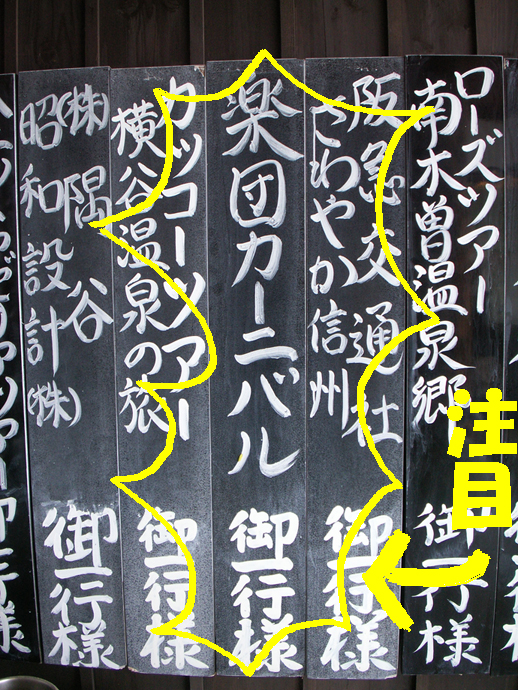 ローズツアー
南木曽温泉郷
御一行様
阪急交通社
さわやか信州
御一行様
楽団カーニバル
御一行様
カッコーツアー
横谷温泉の旅
御一行様
(株)隅谷
昭和設計(株)
御一行様
注目